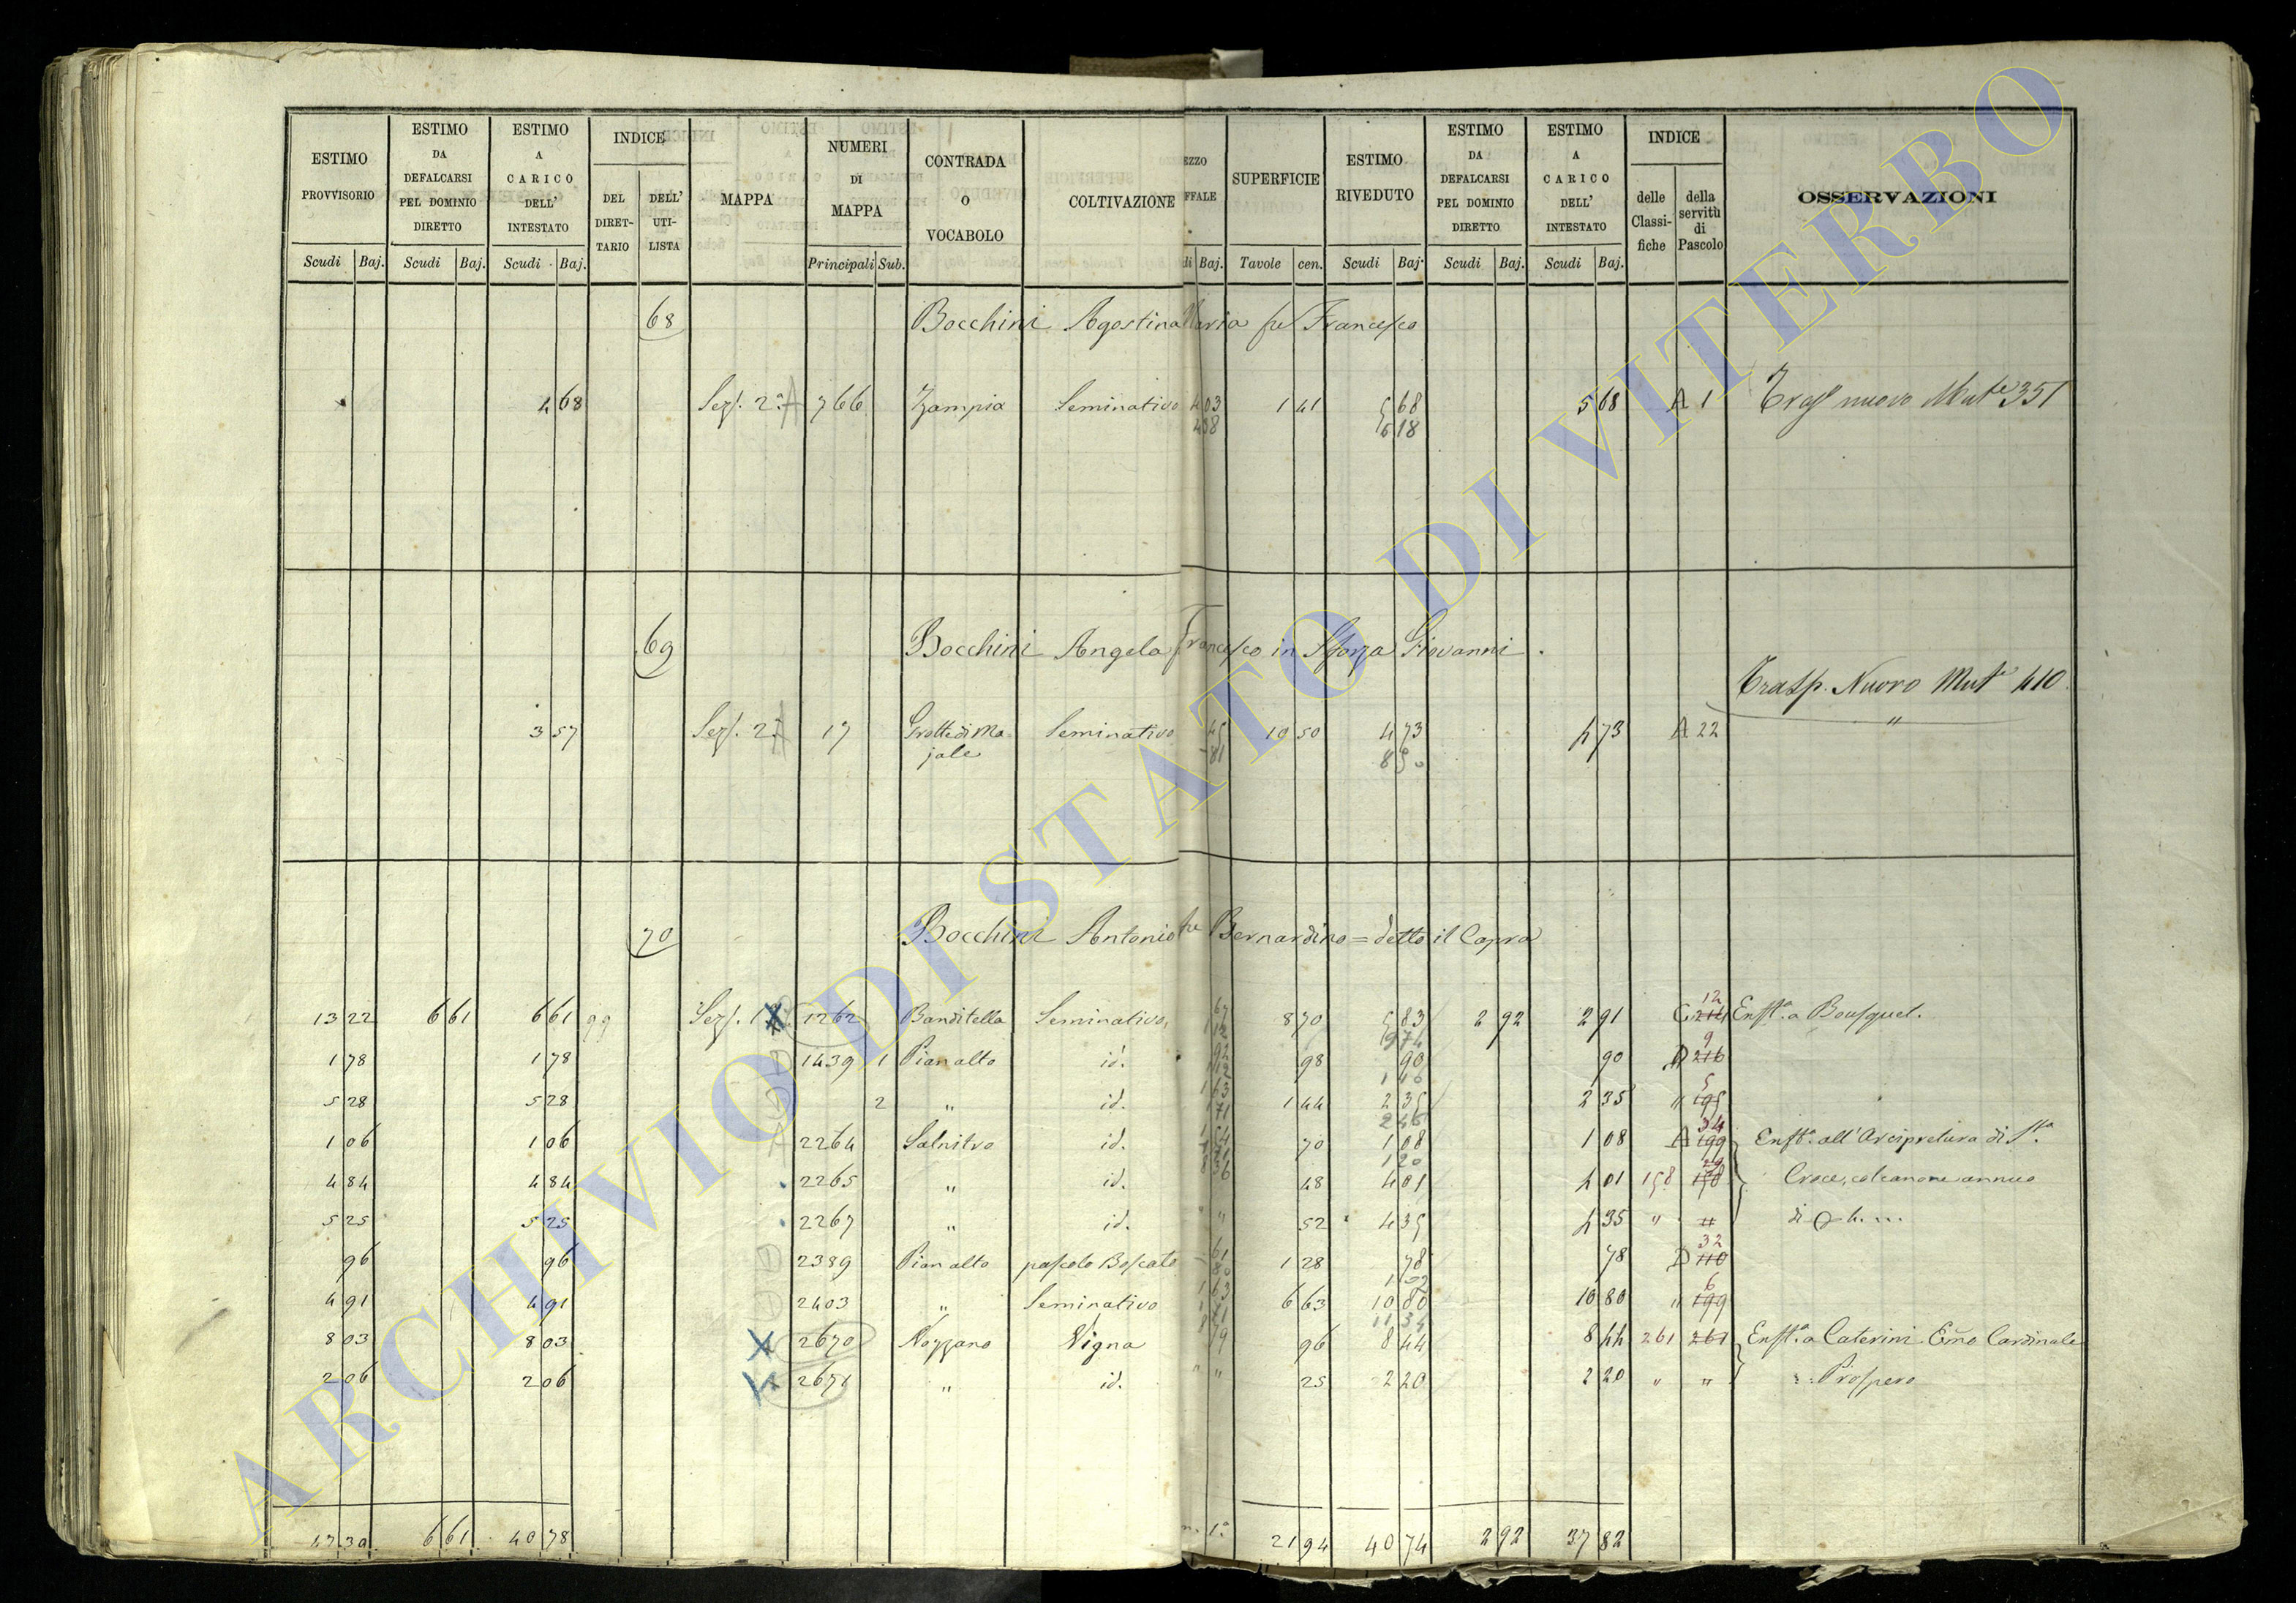 ESTIMO PROVVISORIO Scudi Baj.
ESTIMO DA DEFALCARSI PEL DOMINIO DIRETTO Scudi Baj.
ESTIMO A CARICO DELL' INTESTATO Scudi Baj.
INDICE DEL DIRET- TARIO DELL' UTI- LISTA
MAPPA
NUMERI DI MAPPA Principali Sub.
CONTRADA O VOCABOLO
COLTIVAZIONE
EZZO FFALE di Baj.
SUPERFICIE Tavole cen.
ESTIMO RIVEDUTO Scudi Baj.
ESTIMO DA DEFALCARSI PEL DOMINIO DIRETTO Scudi Baj.
ESTIMO A CARICO DELL' INTESTATO Scudi Baj.
INDICE delle Classi- fiche della servitù di Pascolo
OSSERVAZIONI
68 Bocchini Agostina Maria fu Francesco
4 68 Sez. 2ª A 766 Zampia Seminativo 403 1 41 5 68 5 68 A 1 Trasp nuovo Mut 351
438 6 18
69 Bocchini Angela Francesco in Sforza Giovanni.
Trasp. Nuovo Mut 410
3 57 Sez. 2ª 17 Grotte di Ma- Seminativo 45 10 50 4 73 4 73 A 22 "
jale 81
70 Bocchini Antonio fu Bernardino = detto il Capra
13 22 6 61 6 61 99 Sez. 1 X 1262 Banditella Seminativo 67 8 70 5 83 2 92 2 91 C 214 12 Enfta. a Bousquet.
1 78 1 78 1439 1 Pian alto id. 98 90 90 D 216 9
5 28 5 28 2 " id. 1 44 2 35 2 35 " 195 5
1 06 1 06 2264 Salnitro id. 70 1 08 1 08 A 199 34 Enfta. all'Arcipretura di Sta
4 84 4 84 2265 " id. 48 4 01 4 01 158 Croce, col canone annuo
5 25 5 25 2267 " id. " 52 4 35 4 35 " " di
96 96 2389 Pian alto pascolo Boscato 1 28 78 78 D 110 32
4 91 4 91 2403 " Seminativo 6 63 10 80 10 80 " 199 6
8 03 8 03 X 2670 Nozzano Vigna 96 8 44 8 44 261 261 Enfta. a Caterini Emo Cardinale
2 06 2 06 2671 " id. " " 25 2 20 2 20 " " Prospero
47 39 6 61 40 78 1ª 21 94 40 74 2 92 37 82
ARCHIVIO DI STATO DI VITERBO